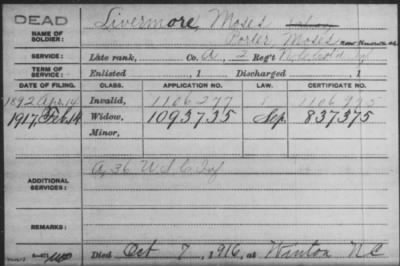 DEAD
NAME OF SOLDIER: Livermore, Moses
Porter, Moses now known as
SERVICE: Late rank, Co. A, 2 Reg't N.C. Col'd Inf
TERM OF SERVICE: Enlisted , 1 Discharged , 1
DATE OF FILING. CLASS. APPLICATION NO. LAW. CERTIFICATE NO.
1892 Apr. 14 Invalid, 1106277
1917, Feb. 14 Widow, 1093735 Sep. 837375
Minor,
ADDITIONAL SERVICES: A, 36 U.S.C. Inf
REMARKS:
Died Oct 7, 1916, at Winton N C